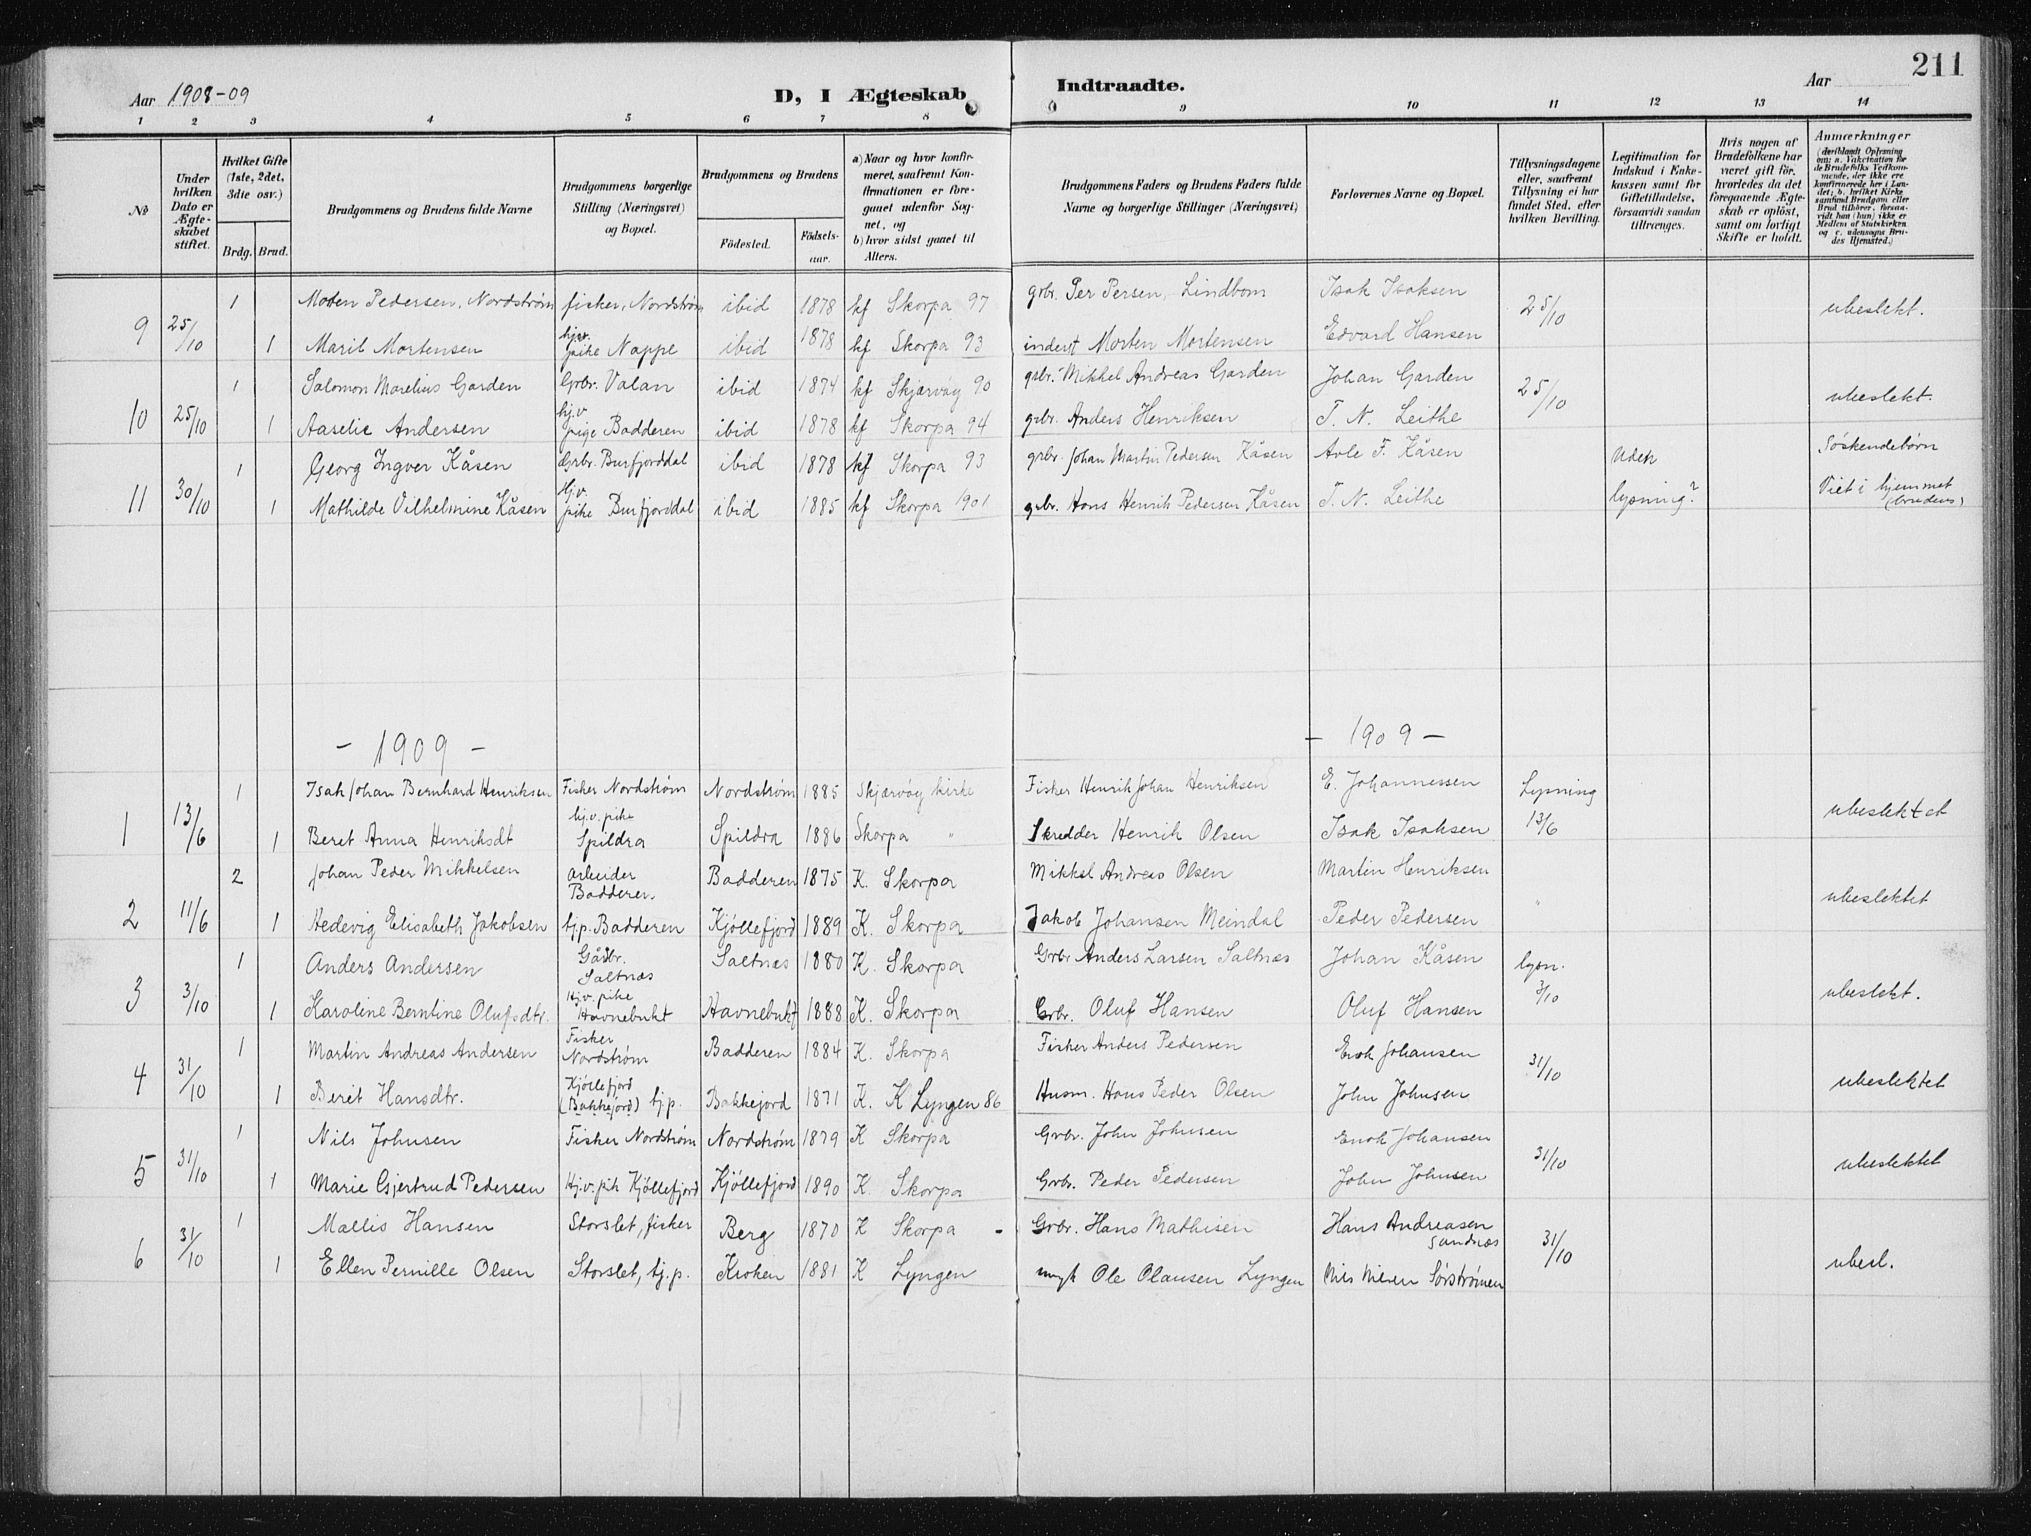 211
Aar 1908-09 D, I Ægteskab Indtraadte. Aar
1 2 3 4 5 6 7 8 9 10 11 12 13 14
№
Under hvilken Dato er Ægteskabet stiftet.
Hvilket Gifte (1ste, 2det, 3die osv.)
Brdg. Brud.
Brudgommens og Brudens fulde Navne
Brudgommens borgerlige Stilling (Næringsvei) og Bopæl.
Brudgommens og Brudens
Fødested. Fødselsaar.
a) Naar og hvor konfirmeret, saafremt Konfirmationen er foregaaet udenfor Sognet, og
b) hvor sidst gaaet til Alters.
Brudgommens Faders og Brudens Faders fulde Navne og borgerlige Stillinger (Næringsvei)
Forlovernes Navne og Bopæl.
Tillysningsdagene eller, saafremt Tillysning ei har fundet Sted, efter hvilken Bevilling.
Legitimation for Indskud i Enkekassen samt for Giftetilladelse, forsaavidt saadan tiltrænges.
Hvis nogen af Brudefolkene har været gift før, hvorledes da det foregaaende Ægteskab er opløst, samt om lovligt Skifte er holdt.
Anmærkninger (deriblandt Oplysning om: a. Vakcination for de Brudefolks Vedkommende, der ikke ere konfirmerede her i Landet; b. hvilket Kirkesamfund Brudgom eller Brud tilhører, forsaavidt han (hun) ikke er Medlem af Statskirken og c. udensogns Brudes Hjemsted.)
1 Moten Pedersen, Nordstrøm fisker, Nordstrøm ibid 1878 kf Skorpa 97 grbr. Per Persen, Lindbom Isak Isaksen 25/10 ubeslekt.
9 25/10 1 Maril Mortensen hj.v. pike Nappe ibid 1878 kf Skorpa 93 inderst Morten Mortensen Edvard Hansen
1 Salomon Marelius Garden Grbr. Valan ibid 1874 kf Skjærvøy 90 grbr. Mikkel Andreas Garden Johan Garden 25/10 ubeslekt.
10 25/10 1 Aaselie Andersen hj.v pige Badderen ibid 1878 kf Skorpa 94 grbr. Anders Henriksen T. N. Leithe
1 Georg Ingver Kåsen Grbr. Burfjorddal ibid 1878 kf Skorpa 93 grbr. Johan Martin Pedersen Kåsen Arle F. Kåsen Uden Søskendebørn
11 30/10 1 Mathilde Vilhelmine Kåsen hj.v. pike Burfjorddal ibid 1885 kf Skorpa 1901 grbr. Hans Henrik Pedersen Kåsen T. N. Leithe lysning? Viet i hjemmet (brudens)
- 1909 - - 1909 -
1 Isak Johan Bernhard Henriksen Fisker Nordstrøm Nordstrøm 1885 Skjærvøy kirke Fisker Henrik Johan Henriksen E. Johannessen Lysning
1 13/6 1 Beret Anna Henriksdt hj.v. pike Spildra Spildra 1886 Skorpa " Skredder Henrik Olsen Isak Isaksen 13/6 ubeslektet
2 Johan Peder Mikkelsen arbeider Badderen Badderen 1875 K. Skorpa Mikkel Andreas Olsen Martin Henriksen
2 11/6 1 Hedevig Elisabeth Jakobsen tj.p. Badderen Kjøllefjord 1889 K. Skorpa Jakob Johansen Meindal Peder Pedersen " ubeslektet
1 Anders Andersen Gårbr. Saltnæs Saltnæs 1880 K. Skorpa Grbr Anders Larsen Saltnæs Johan Kåsen lysn.
3 3/10 1 Karoline Berntine Olufsdtr. Hj.v. pike Havnebukt Havnebukt 1888 K. Skorpa Grbr. Oluf Hansen Oluf Hansen 3/10 ubeslekt.
1 Martin Andreas Andersen Fisker Nordstrøm Badderen 1884 K. Skorpa Fisker Anders Pedersen Enok Johansen
4 31/10 1 Berit Hansdtr. Kjøllefjord (Bakkejord) tj.p. Bakkejord 1871 K. K Lyngen 86 Husm. Hans Peder Olsen John Johnsen 31/10 ubeslektet
1 Nils Johnsen Fisker Nordstrøm Nordstrøm 1879 K Skorpa Grbr. John Johnsen Enok Johansen
5 31/10 1 Marie Gjertrud Pedersen Hj.v. pik Kjøllefjord Kjøllefjord 1890 K. Skorpa Grbr. Peder Pedersen John Johnsen 31/10 ubeslektet
1 Mallis Hansen Storslet, fisker Berg 1870 K Skorpa - Grbr. Hans Mathisen Hans Andreasen Sandnæs
6 31/10 1 Ellen Pernille Olsen Storslet, tj.p. Kroken 1881 K Lyngen Ole Olausen Lyngen Nils Nilsen Sørstrømen 31/10 ubesl.